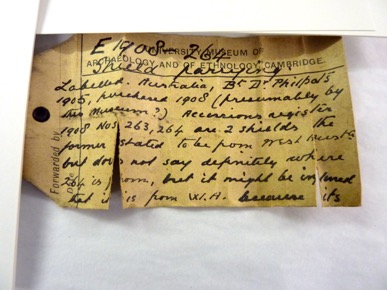 E 1908 - 264
UNIVERSITY MUSEUM OF
ARCHAEOLOGY AND OF ETHNOLOGY, CAMBRIDGE.
Shield parrying
Labelled. Australia,
1905, purchased 1908 (presumably by
this Museum?) Accessions register
1908 Nos. 263, 264 are 2 shields the
former stated to be from West Aust
but does not say definitely where
264 is from, but it might be inferred
that it is from W.A. because its
Forwarded by